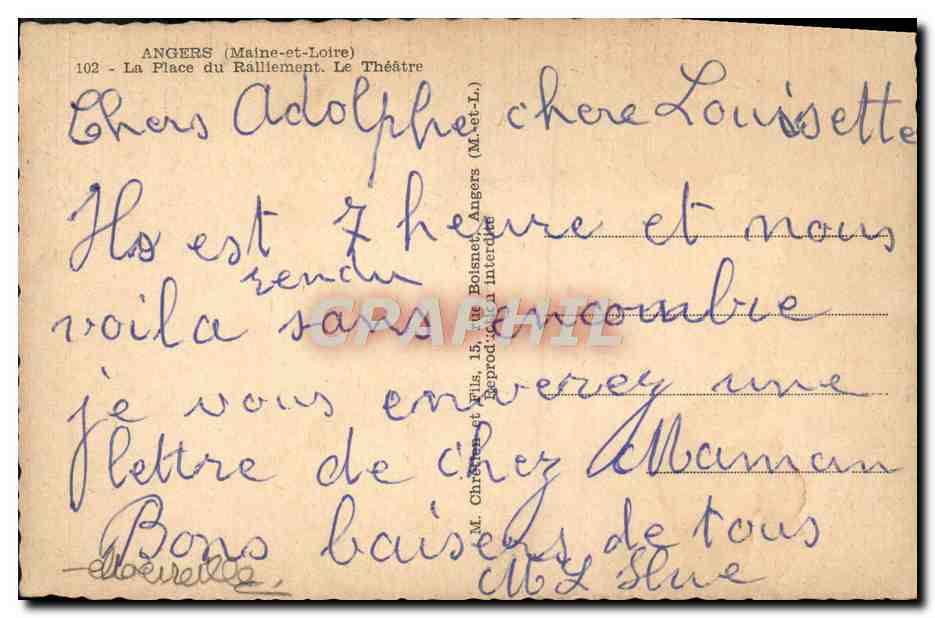 ANGERS (Maine-et-Loire)
102 - La Place du Ralliement. Le Théâtre
Chers Adolphe chere Louisette
Ils est 7 heure et nous
rendu
voila sans encombre
je vous enverez une
lettre de chez Maman
Bons baisers de tous
M L Hue
M. Chrétien et Fils, 15, rue Boisnet, Angers (M.-et-L.)
Reproduction interdite
CPAPHIL